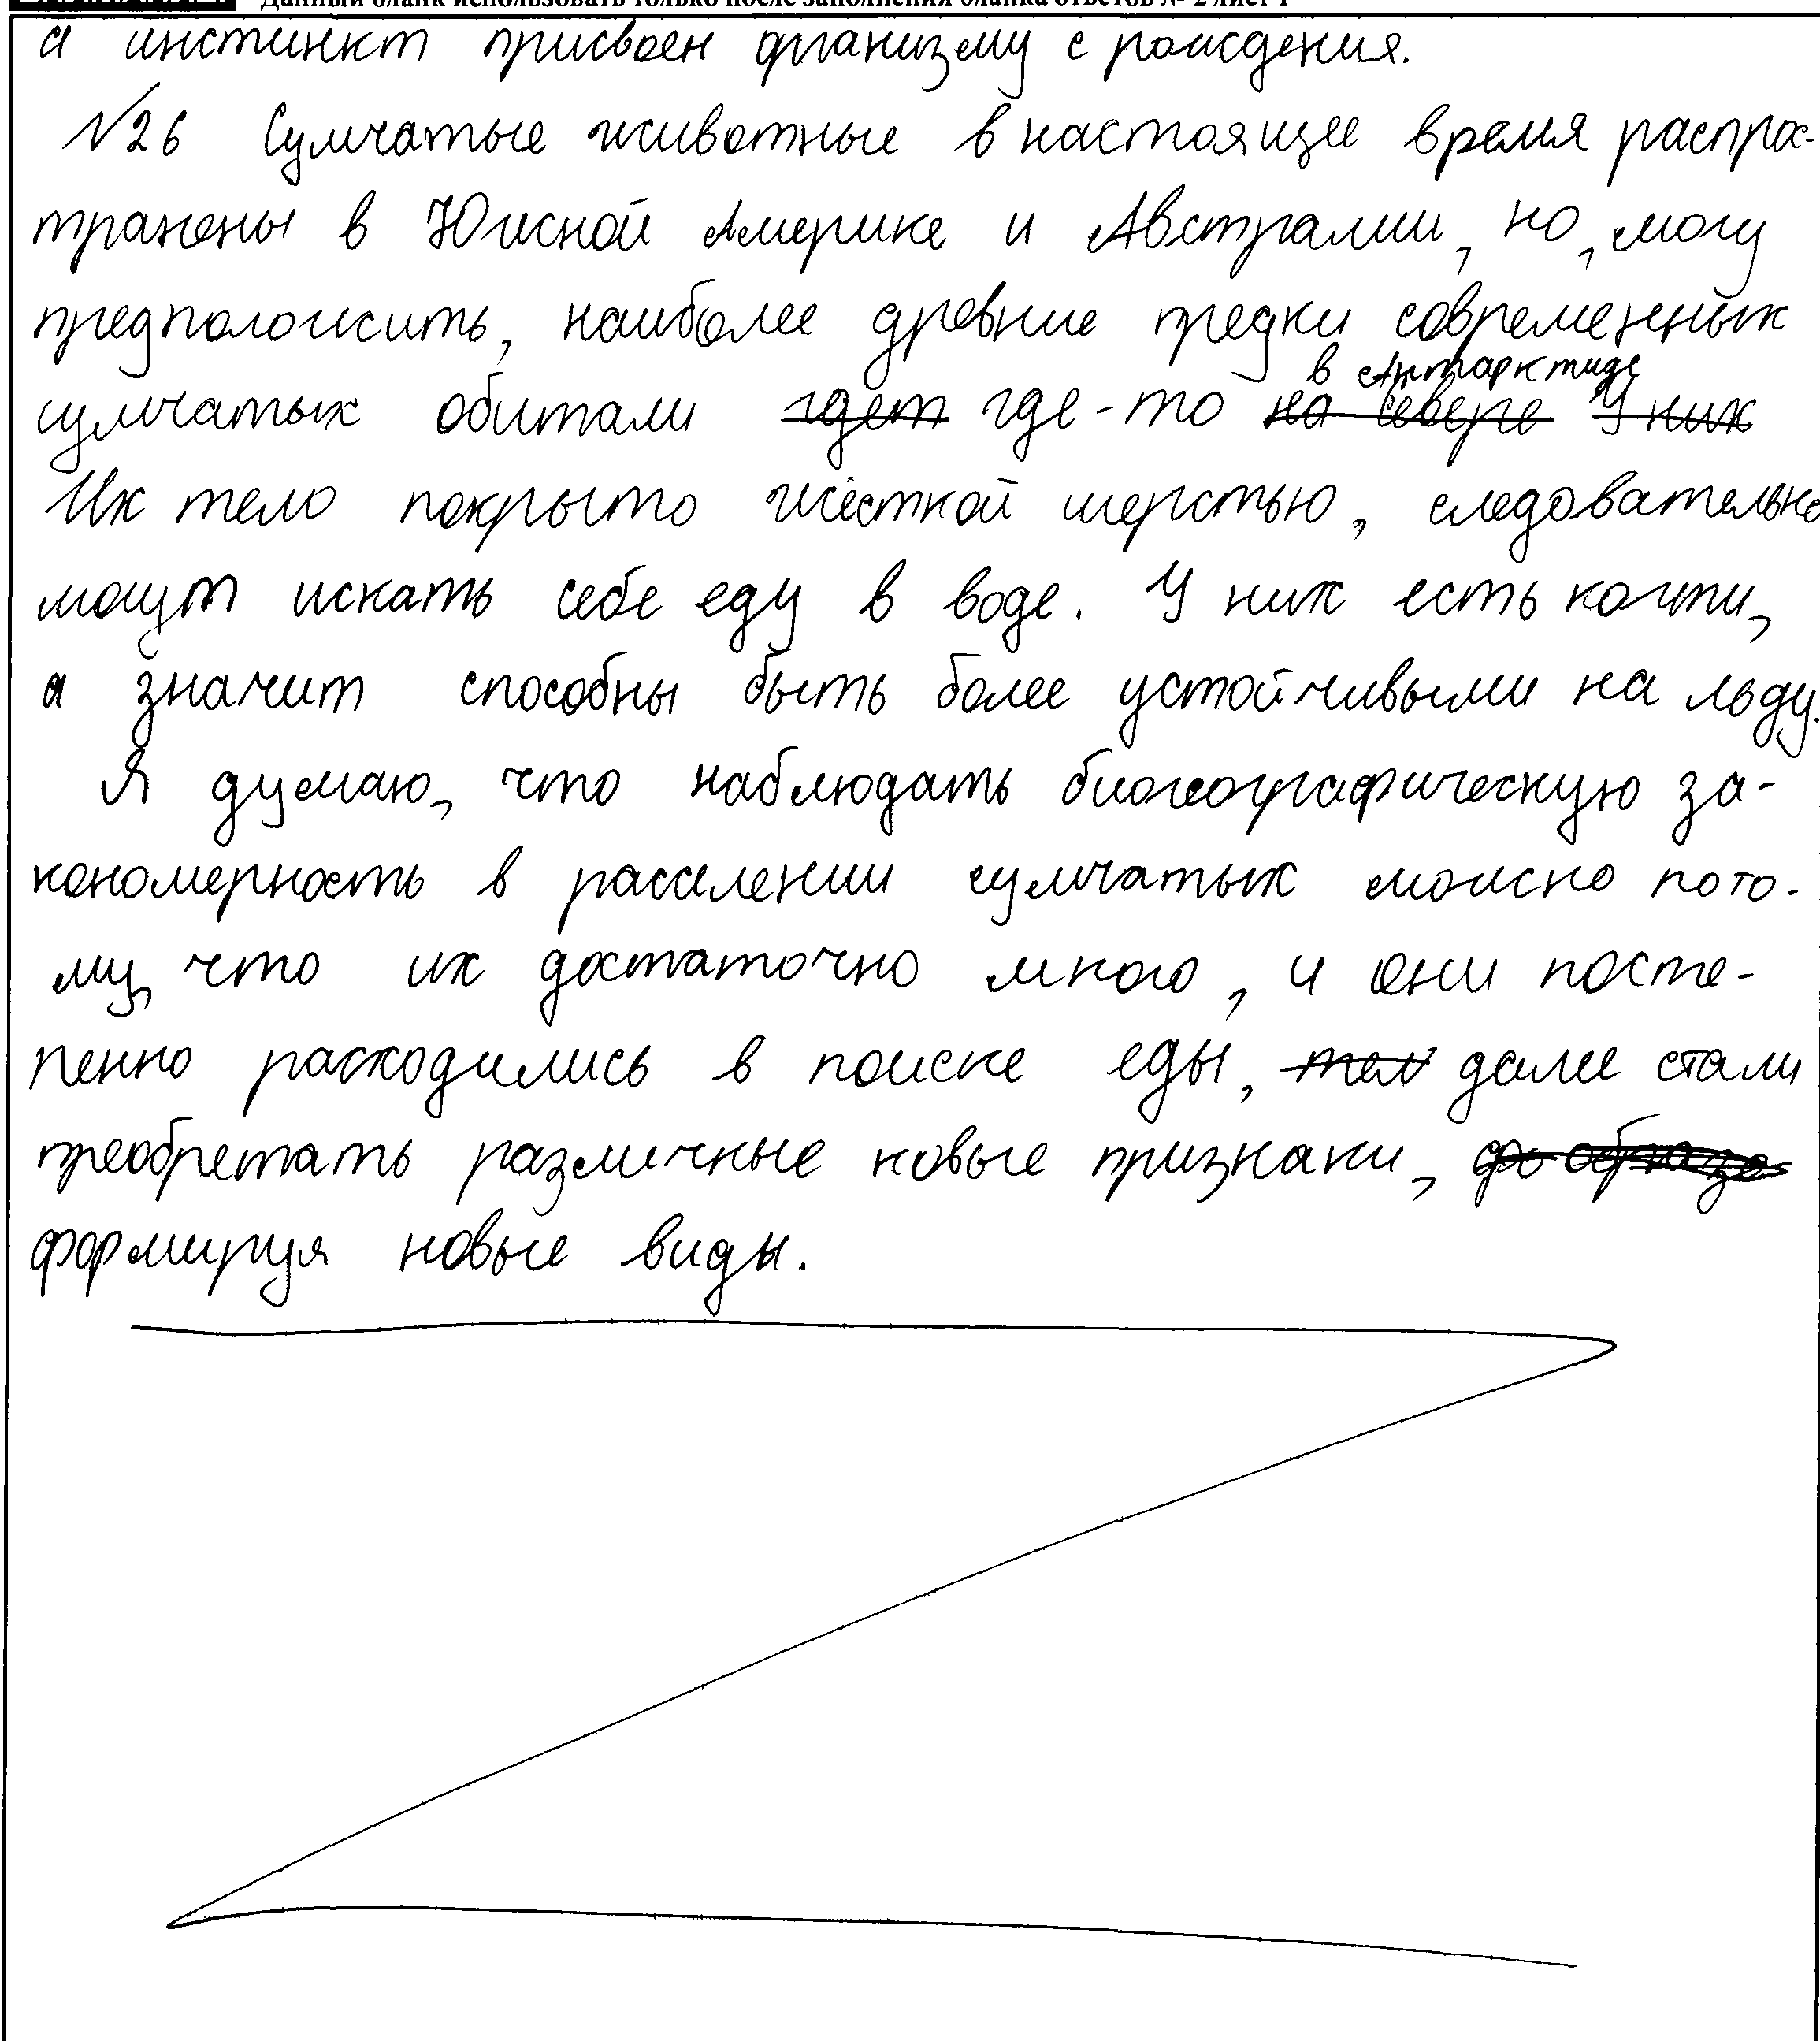 Данный бланк использовать только после заполнения бланка ответов № 2 лист 1
а инстинкт присвоен организму с рождения.
№26 Сумчатые животные в настоящее время распрос-
транены в Южной Америке и Австралии, но, могу
предположить, наиболее древние предки современных
в Антарктиде
сумчатых обитали гдет где-то на севере У них
Их тело покрыто жёсткой шерстью, следовательно
могут искать себе еду в воде. У них есть когти,
а значит способны быть более устойчивыми на льду.
Я думаю, что наблюдать биогеографическую за-
кономерность в расселении сумчатых можно пото-
му, что их достаточно много, и они посте-
пенно расходились в поиске еды, далее стали
преобретать различные новые признаки,
формируя новые виды.